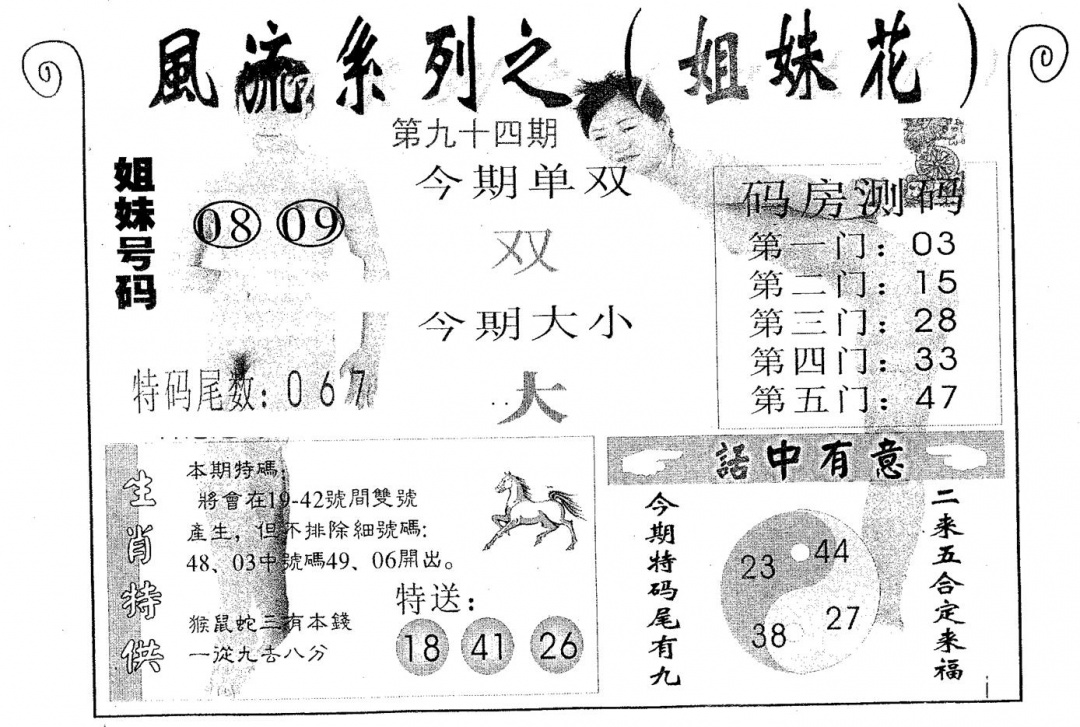 風流系列之（姐妹花）
第九十四期
姐妹号码
08 09
今期单双
双
今期大小
大
特码尾数：067
码房测码
第一门：03
第二门：15
第三门：28
第四门：33
第五门：47
生肖特供
本期特碼：
將會在19-42號間雙號
產生，但不排除細號碼：
48、03中號碼49、06開出。
猴鼠蛇三有本錢
一從九去八分
特送：
18 41 26
話中有意
今期特码尾有九
23 44
38 27
二来五合定来福